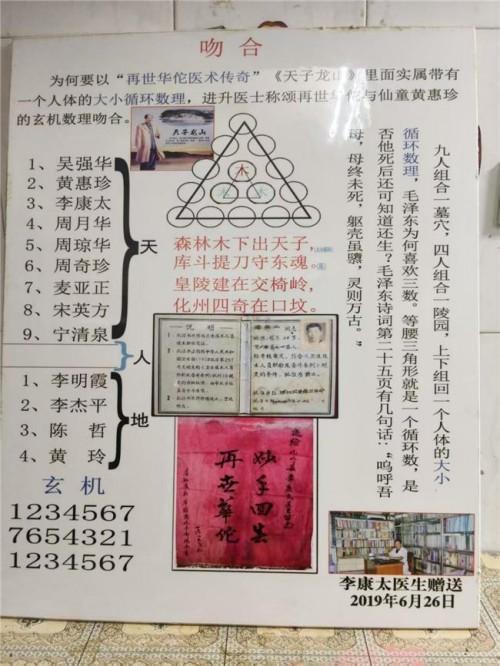 吻合
为何要以“再世华佗医术传奇”《天子龙山》里面实属带有
一个人体的大小循环数理，进升医士称颂再世华佗与仙童黄惠珍
的玄机数理吻合。
天子龙山
木
木 木
1、吴强华
2、黄惠珍
3、李康太
4、周月华
5、周琼华
6、周奇珍
7、麦亚正
8、宋英方
9、宁清泉
天
人
1、李明霞
2、李杰平
3、陈 哲
4、黄 玲
地
森林木下出天子，
库斗提刀守东魂。
皇陵建在交椅岭，
化州四奇在口坟。
九人组合一墓穴，四人组合一陵园，上下组回一个人体的大小
循环数理，毛泽东为何喜欢三数。等腰三角形就是一个循环数，是
否他死后还可知道还生？毛泽东诗词第二十五页有几句话：“呜呼吾
母，母终未死，躯壳虽隳，灵则万古。”
说明
妙手回生
再世华佗
玄机
1234567
7654321
1234567
李康太医生赠送
2019年6月26日